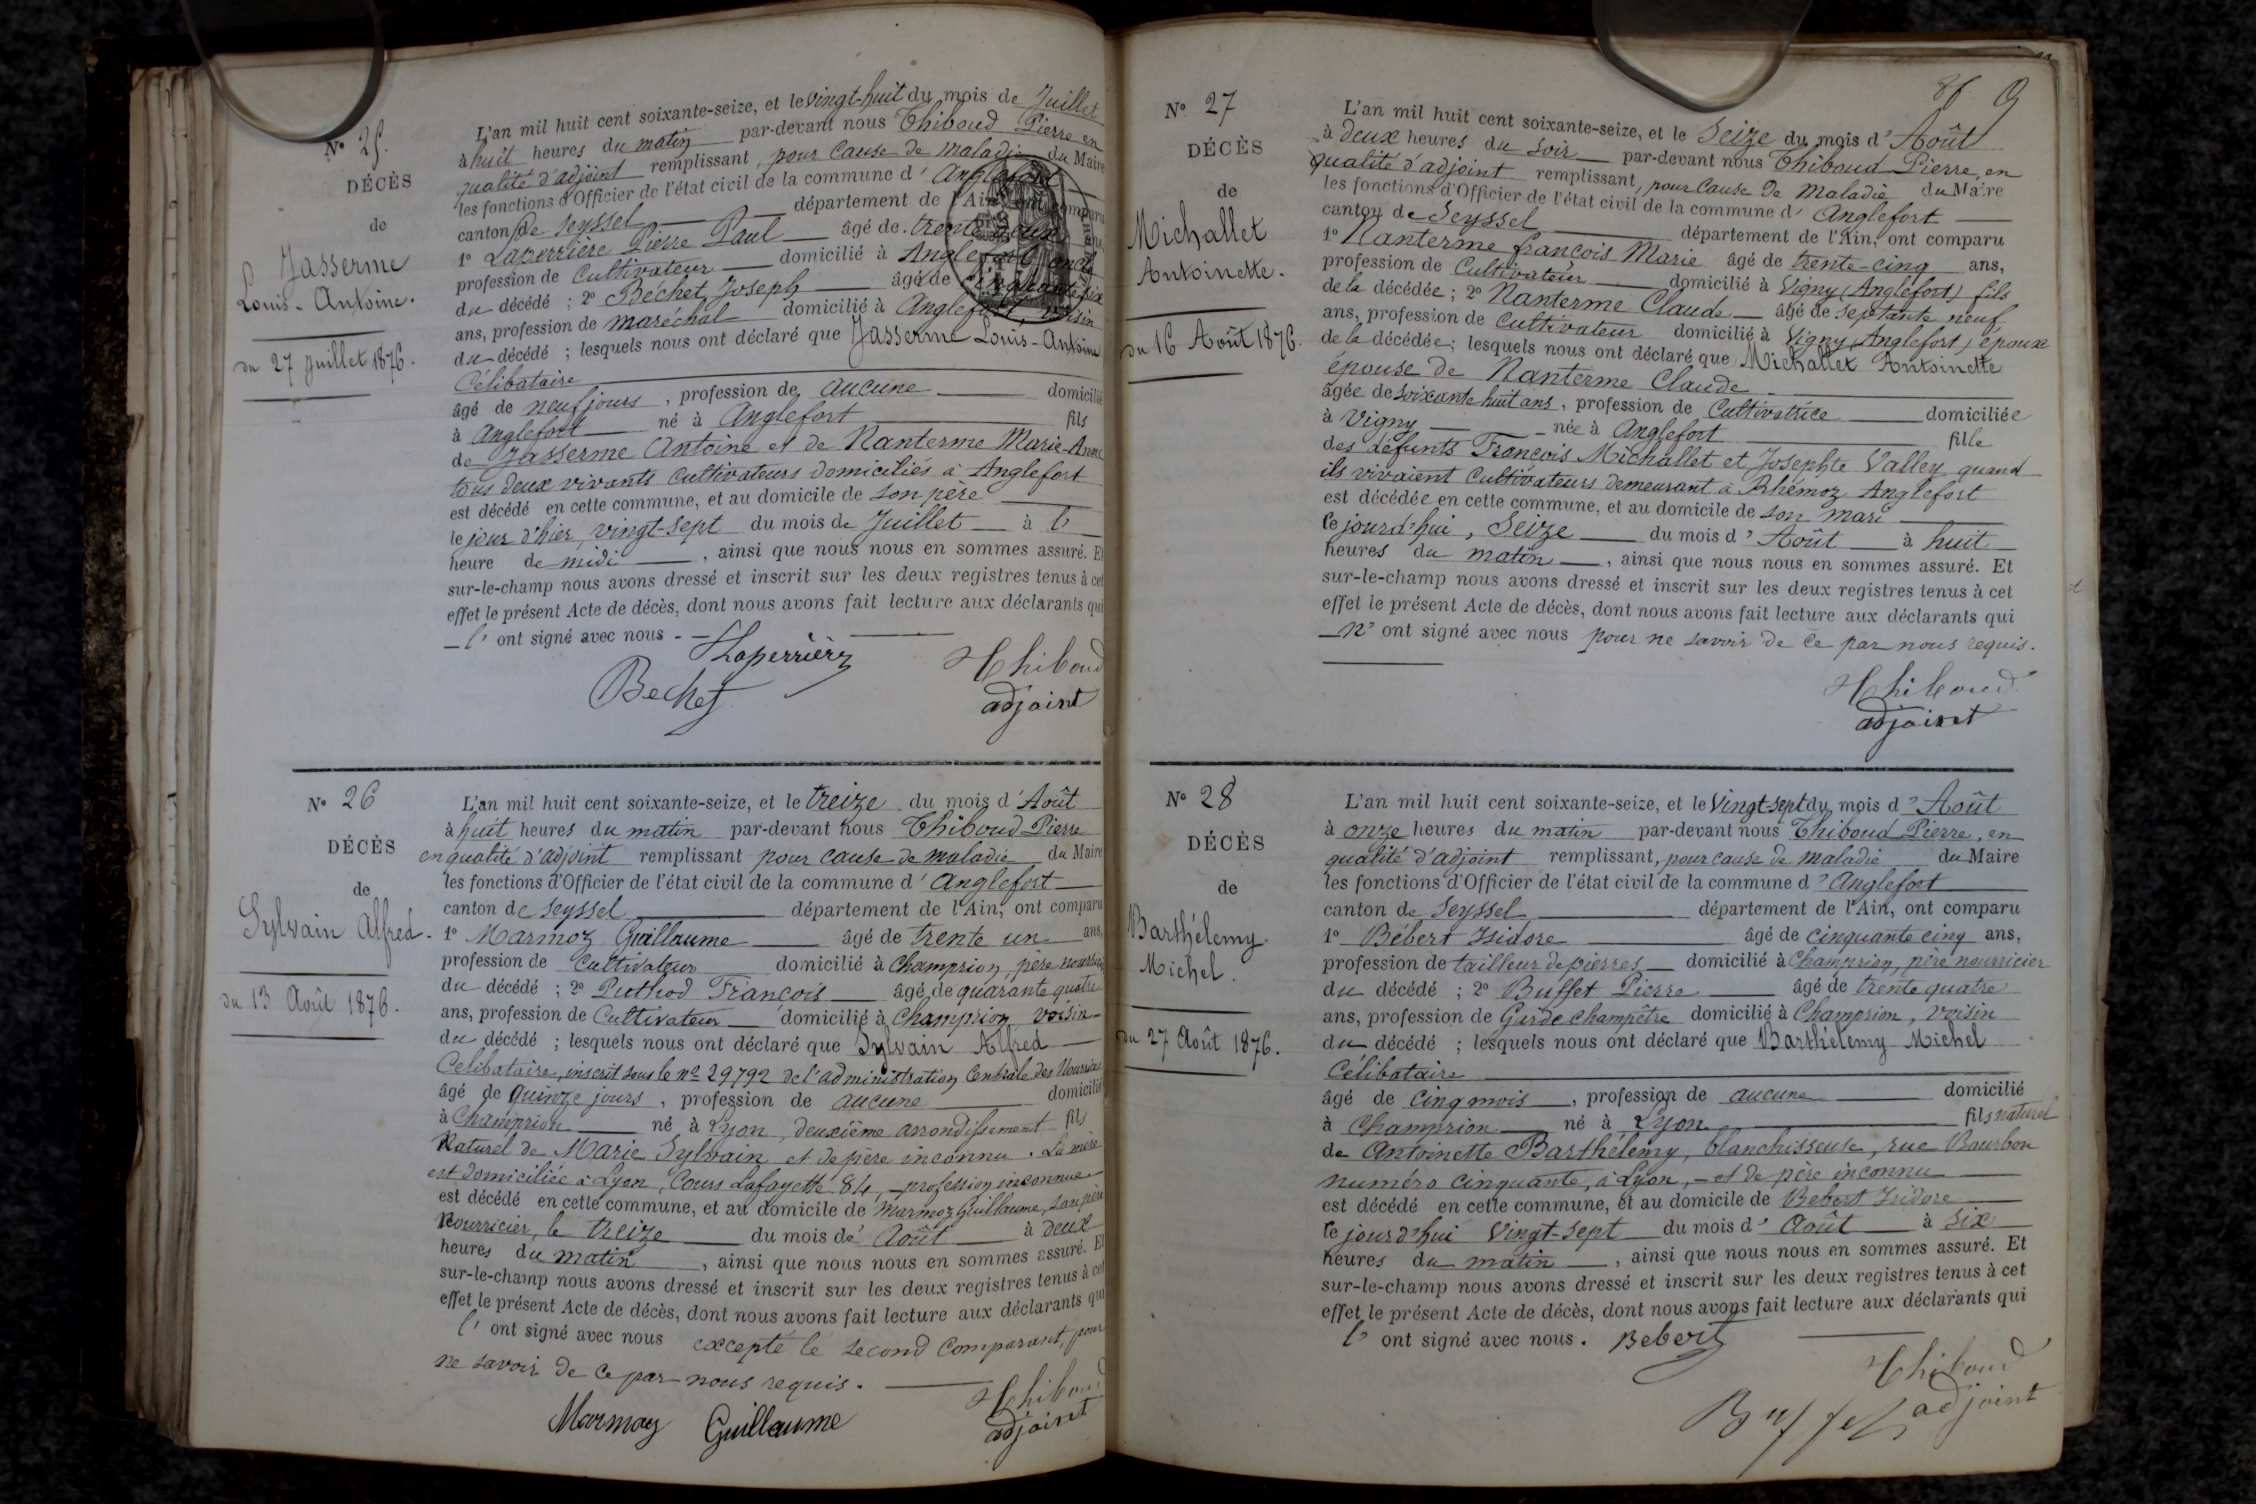 N° 25.
DÉCÈS
de
Jasserme
Louis-Antoine.
du 27 Juillet 1876.
L'an mil huit cent soixante-seize, et le vingt-huit du mois de Juillet
à huit heures du matin par-devant nous Thiboud Pierre en
qualité d'adjoint remplissant, pour cause de maladie du Maire
les fonctions d'Officier de l'état civil de la commune d'Anglefort
canton de Seyssel département de l'Ain, ont comparu
1° Laperrière Pierre Paul âgé de trente
profession de Cultivateur domicilié à Anglefort oncle
du décédé ; 2° Béchet Joseph âgé de cinquante six
ans, profession de maréchal domicilié à Anglefort, voisin
du décédé ; lesquels nous ont déclaré que Jasserme Louis-Antoine
Célibataire
âgé de neuf jours, profession de aucune domicilié
à Anglefort né à Anglefort fils
de Jasserme Antoine et de Nanterme Marie-Anne
tous deux vivants Cultivateurs domiciliés à Anglefort
est décédé en cette commune, et au domicile de son père
le jour d'hier, vingt-sept du mois de Juillet à l'
heure de midi, ainsi que nous nous en sommes assuré. Et
sur-le-champ nous avons dressé et inscrit sur les deux registres tenus à cet
effet le présent Acte de décès, dont nous avons fait lecture aux déclarants qui
l'ont signé avec nous.
Laperrière
Bechet
Thiboud
adjoint
N° 26
DÉCÈS
de
Sylvain Alfred.
du 13 Août 1876.
L'an mil huit cent soixante-seize, et le treize du mois d'Août
à huit heures du matin par-devant nous Thiboud Pierre
en qualité d'adjoint remplissant pour cause de maladie du Maire
les fonctions d'Officier de l'état civil de la commune d'Anglefort
canton de Seyssel département de l'Ain, ont comparu
1° Marmoz Guillaume âgé de trente un ans,
profession de Cultivateur domicilié à Champrion, père nourricier
du décédé ; 2° Puthod François âgé de quarante quatre
ans, profession de Cultivateur domicilié à Champrion voisin
du décédé ; lesquels nous ont déclaré que Sylvain Alfred
Célibataire, inscrit sous le n° 29792 de l'administration Centrale des Nourrices
âgé de quinze jours, profession de aucune domicilié
à Champrion né à Lyon, deuxième arrondissement fils
Naturel de Marie Sylvain et de père inconnu. La mère
est domiciliée à Lyon, Cours Lafayette 84, profession inconnue
est décédé en cette commune, et au domicile de Marmoz Guillaume, son père
Nourricier, le treize du mois de Août à deux
heures du matin, ainsi que nous nous en sommes assuré. Et
sur-le-champ nous avons dressé et inscrit sur les deux registres tenus à cet
effet le présent Acte de décès, dont nous avons fait lecture aux déclarants qui
l'ont signé avec nous excepté le second Comparant, pour
ne savoir de ce par nous requis.
Marmoz Guillaume
Thiboud
adjoint
86 9
N° 27
DÉCÈS
de
Michallet
Antoinette.
du 16 Août 1876.
L'an mil huit cent soixante-seize, et le Seize du mois d'Août
à deux heures du soir par-devant nous Thiboud Pierre, en
qualité d'adjoint remplissant, pour cause de maladie du Maire
les fonctions d'Officier de l'état civil de la commune d'Anglefort
canton de Seyssel département de l'Ain, ont comparu
1° Nanterme françois Marie âgé de trente-cinq ans,
profession de Cultivateur domicilié à Vigny (Anglefort) fils
de la décédée ; 2° Nanterme Claude âgé de septante neuf
ans, profession de Cultivateur domicilié à Vigny (Anglefort) époux
de la décédée ; lesquels nous ont déclaré que Michallet Antoinette
épouse de Nanterme Claude
âgée de soixante huit ans, profession de Cultivatrice domiciliée
à Vigny née à Anglefort fille
des défunts François Michallet et Josephte Valley quand
ils vivaient Cultivateurs demeurant à Rhémoz Anglefort
est décédée en cette commune, et au domicile de son mari
ce jourd'hui, Seize du mois d'Août à huit
heures du matin, ainsi que nous nous en sommes assuré. Et
sur-le-champ nous avons dressé et inscrit sur les deux registres tenus à cet
effet le présent Acte de décès, dont nous avons fait lecture aux déclarants qui
n'ont signé avec nous pour ne savoir de ce par nous requis.
Thiboud
adjoint
N° 28
DÉCÈS
de
Barthélemy
Michel.
du 27 Août 1876.
L'an mil huit cent soixante-seize, et le Vingt-sept du mois d'Août
à onze heures du matin par-devant nous Thiboud Pierre, en
qualité d'adjoint remplissant, pour cause de maladie du Maire
les fonctions d'Officier de l'état civil de la commune d'Anglefort
canton de Seyssel département de l'Ain, ont comparu
1° Bébert Isidore âgé de cinquante cinq ans,
profession de tailleur de pierres domicilié à Champrion, père nourricier
du décédé ; 2° Buffet Pierre âgé de trente quatre
ans, profession de Garde champêtre domicilié à Champrion, voisin
du décédé ; lesquels nous ont déclaré que Barthélemy Michel
Célibataire
âgé de cinq mois, profession de aucune domicilié
à Champrion né à Lyon fils naturel
de Antoinette Barthélemy, blanchisseuse, rue Bourbon
numéro cinquante, à Lyon, et de père inconnu
est décédé en cette commune, et au domicile de Bebert Isidore
ce jourd'hui Vingt-sept du mois d'Août à six
heures du matin, ainsi que nous nous en sommes assuré. Et
sur-le-champ nous avons dressé et inscrit sur les deux registres tenus à cet
effet le présent Acte de décès, dont nous avons fait lecture aux déclarants qui
l'ont signé avec nous. Bebert
Thiboud
Buffet adjoint